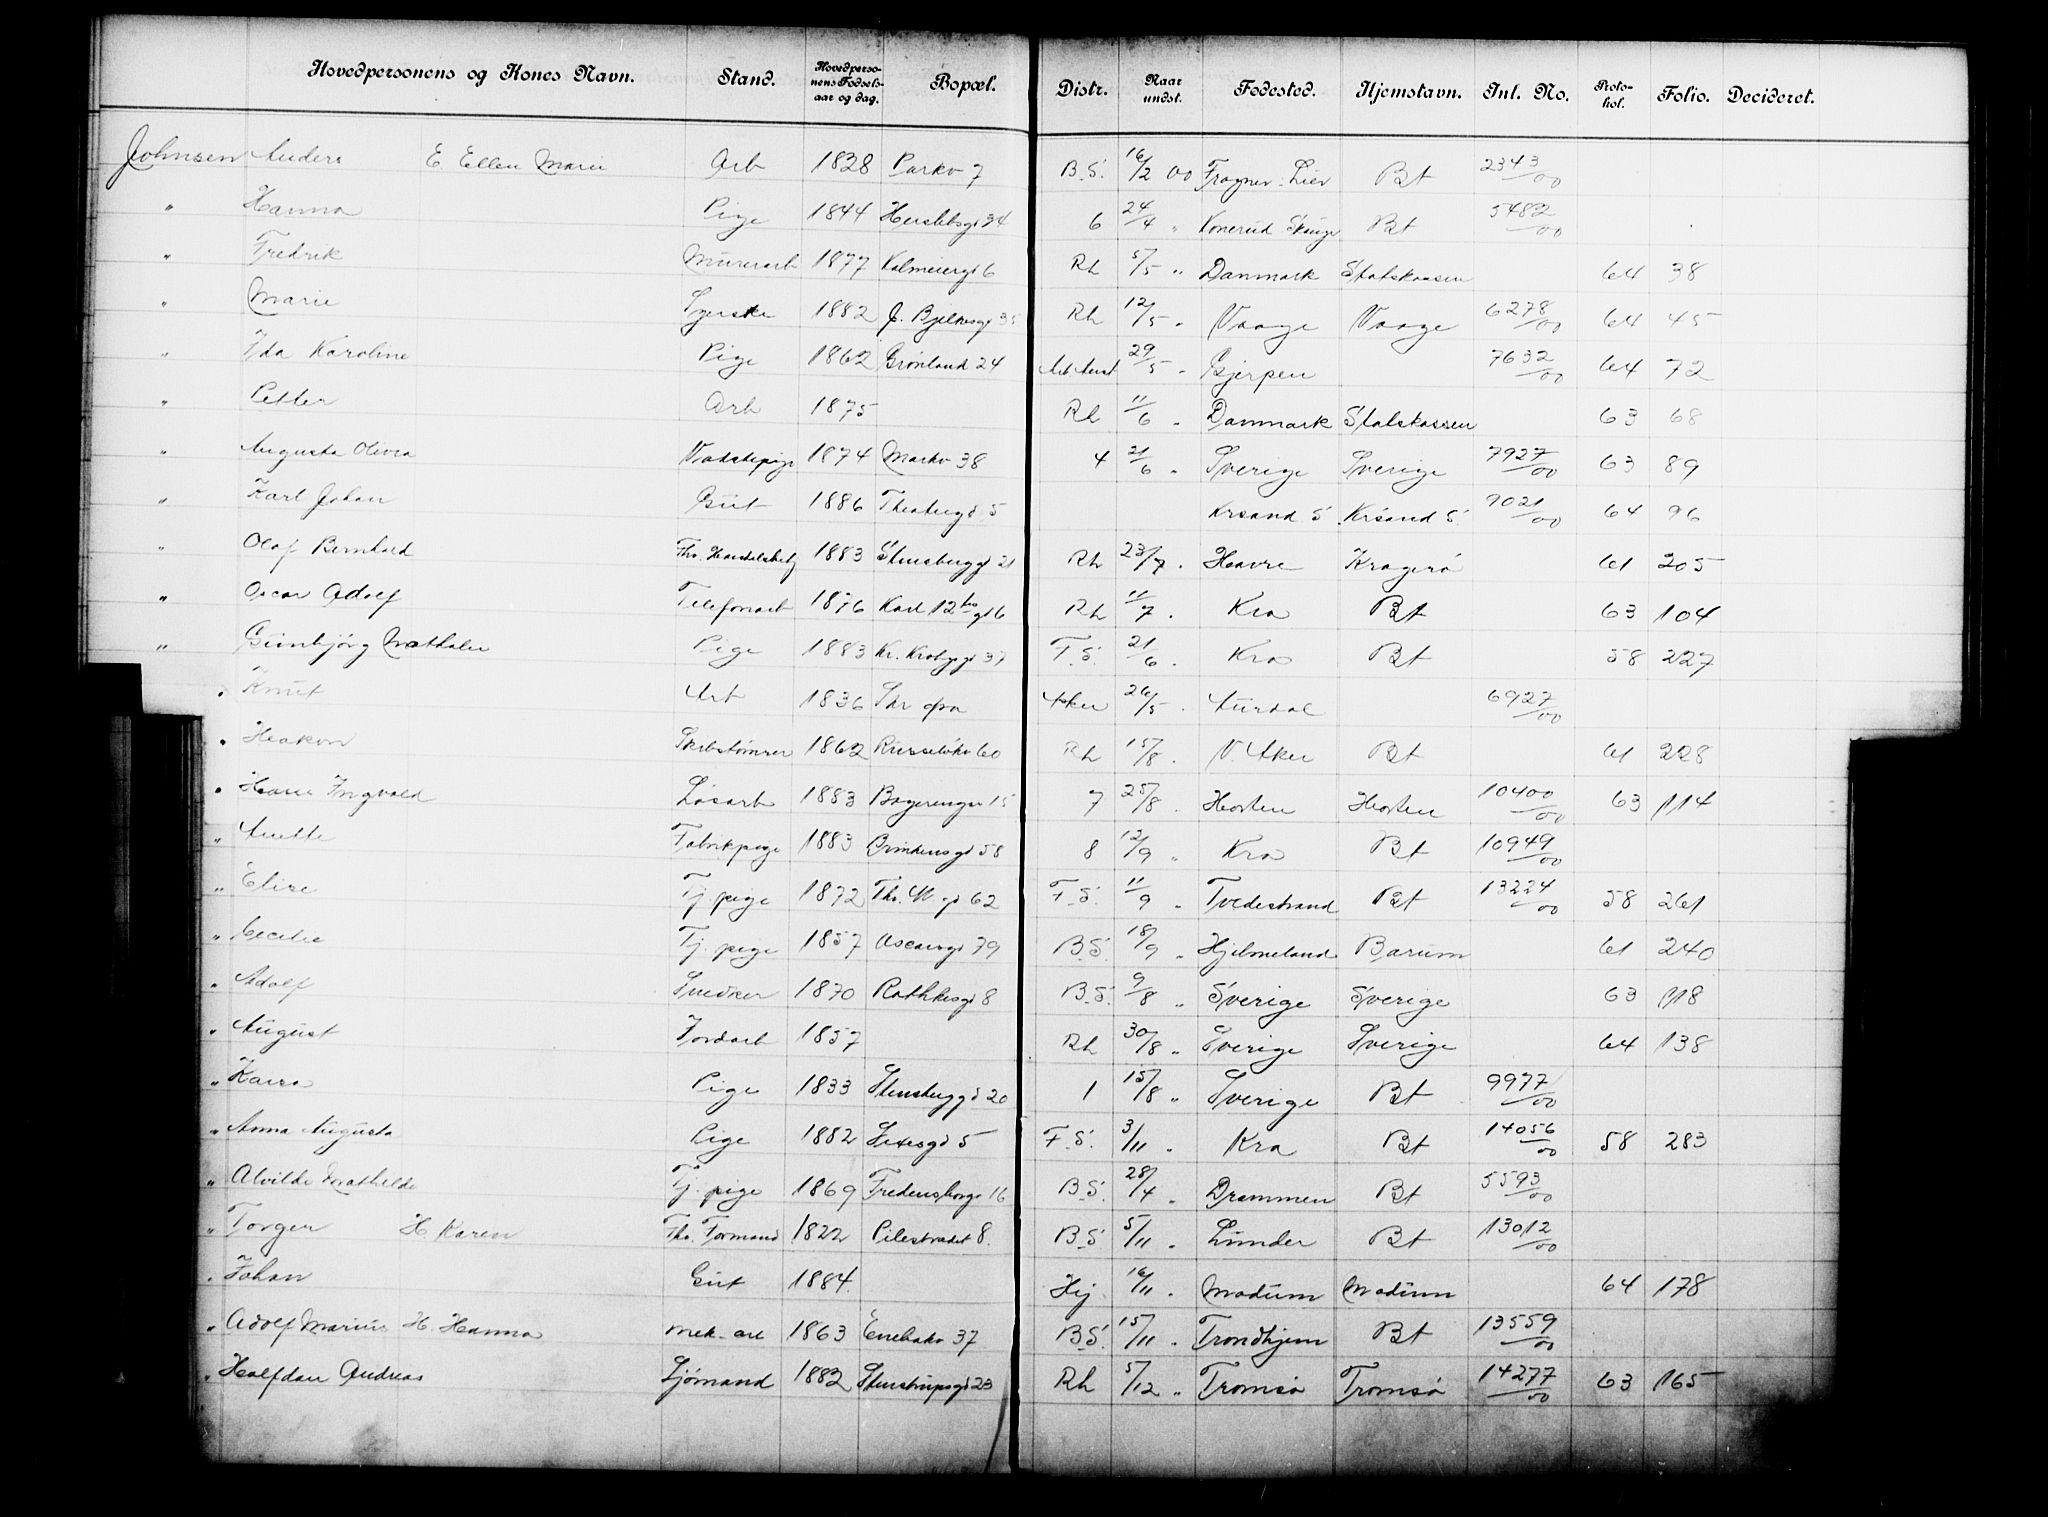 Hovedpersonens og Kones Navn. Stand. Hovedpersonens Fødsels-aar og dag. Bopæl. Distr. Naar undst. Fødested. Hjemstavn. Inl. No. Protokol. Folio. Decideret.
Johnsen Anders E. Ellen Marie Arb 1828 Parkv 7 B.S. 16/2 00 Fragner Lier Bt 2343/00
" Hanna Pige 1844 Herslebsgd 34 6 24/4 " Konerud Bt 5482/00
" Fredrik Murerarb 1877 Kalmeiergd 6 Rh 5/5 " Danmark Statskassen 64 38
" Marie Syerske 1882 J. Bjelkesgd 35 Rh 12/5 " Vaage Vaage 6278/00 64 45
" Ida Karoline Pige 1862 Grønland 24 29/5 " Gjerpen 7632/00 64 72
" Petter Arb 1875 Rh 11/6 " Danmark Statskassen 63 68
" Augusta Olivia 1874 Markv 38 4 21/6 " Sverige Sverige 7927/00 63 89
" Karl Johan Gut 1886 Theatergd 5 Krsand S. Krsand S. 9021/00 64 96
" Olaf Bernhard Fhv. 1883 Stensberggd 21 Rh 23/7 " Havre Kragerø 61 205
" Oscar Adolf Telefonarb 1876 Karl 12tes gd 6 Rh 11/7 " Kra Bt 63 104
" Gunbjørg Mathalie Pige 1883 Kr. Krohgsgd 37 F.S. 21/6 " Kra Bt 58 227
" Knut Arb 1836 Aker 26/5 " Aurdal 6927/00
" Haakon Skibstømrer 1862 Ruseløkv 60 Rh 15/8 " V. Aker Bt 61 228
" Hans Ingvald Løsarb 1883 15 7 25/8 " Horten Horten 10400/00 63 114
" Anette Fabrikpige 1883 58 8 12/9 " Kra Bt 10949/00
" Elise Tj. pige 1872 Th. M. gd 62 F.S. 11/9 " Tvedestrand Bt 13224/00 58 261
" Cecilie Tj. pige 1857 Oscarsgd 79 B.S. 18/9 " Hjelmeland Bærum 61 240
" Adolf Snedker 1870 Rathkesgd 8 B.S. 9/8 " Sverige Sverige 63 118
" August Jordarb 1857 Rh 30/8 " Sverige Sverige 64 138
" Kaisa Pige 1833 Stensberggd 20 1 15/8 " Sverige Bt 9977/00
" Anna Augusta Pige 1882 Sexesgd 5 F.S. 3/11 " Kra Bt 14056/00 58 283
" Alvilde Mathilde Tj. pige 1869 Fredensborgv 16 B.S. 28/4 " Drammen Bt 5593/00
" Torger H. Karen Fhv. Formand 1822 Pilestrædet 8 B.S. 5/11 " Lunder Bt 13012/00
" Johan Gut 1884 Hj 16/11 " Modum Modum 64 178
" Adolf Marius H. Hanna Mek. arb 1863 Enebakv 37 B.S. 15/11 " Trondhjem Bt 13559/00
" Halfdan Andreas Sjømand 1882 Stenstrupsgd 23 Rh 5/12 " Tromsø Tromsø 14277/00 63 165